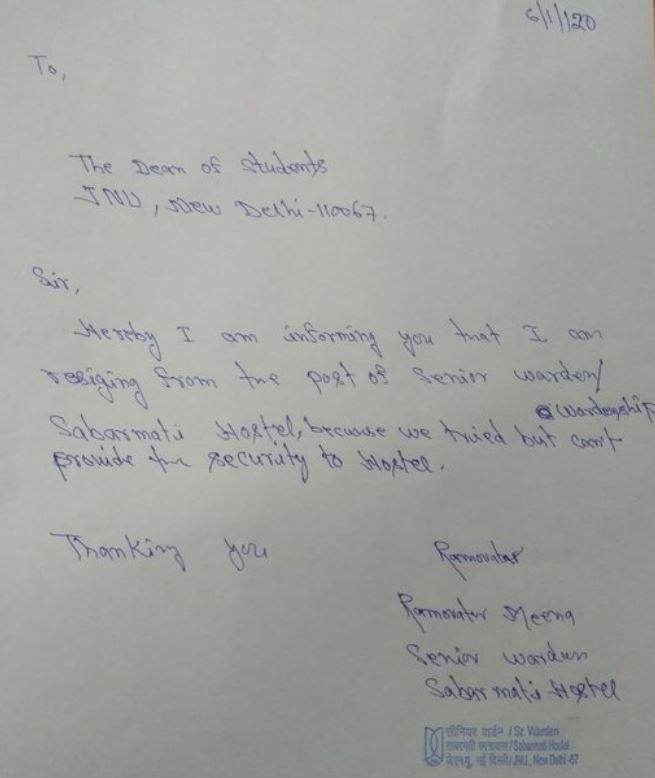 6/1/120
To,
The Dean of Students
JNU, New Delhi-110067.
Sir,
Hereby I am informing you that I am
resiging from the post of Senior warden/
wardenship
Sabarmati Hostel, because we tried but can't
provide the security to Hostel.
Thanking you
Ramavatar
Ramavatar Meena
Senior warden
Sabarmati Hostel
सीनियर वार्डन / Sr. Warden
साबरमती छात्रावास / Sabarmati Hostel
जे.एन.यू., नई दिल्ली / JNU, New Delhi -67